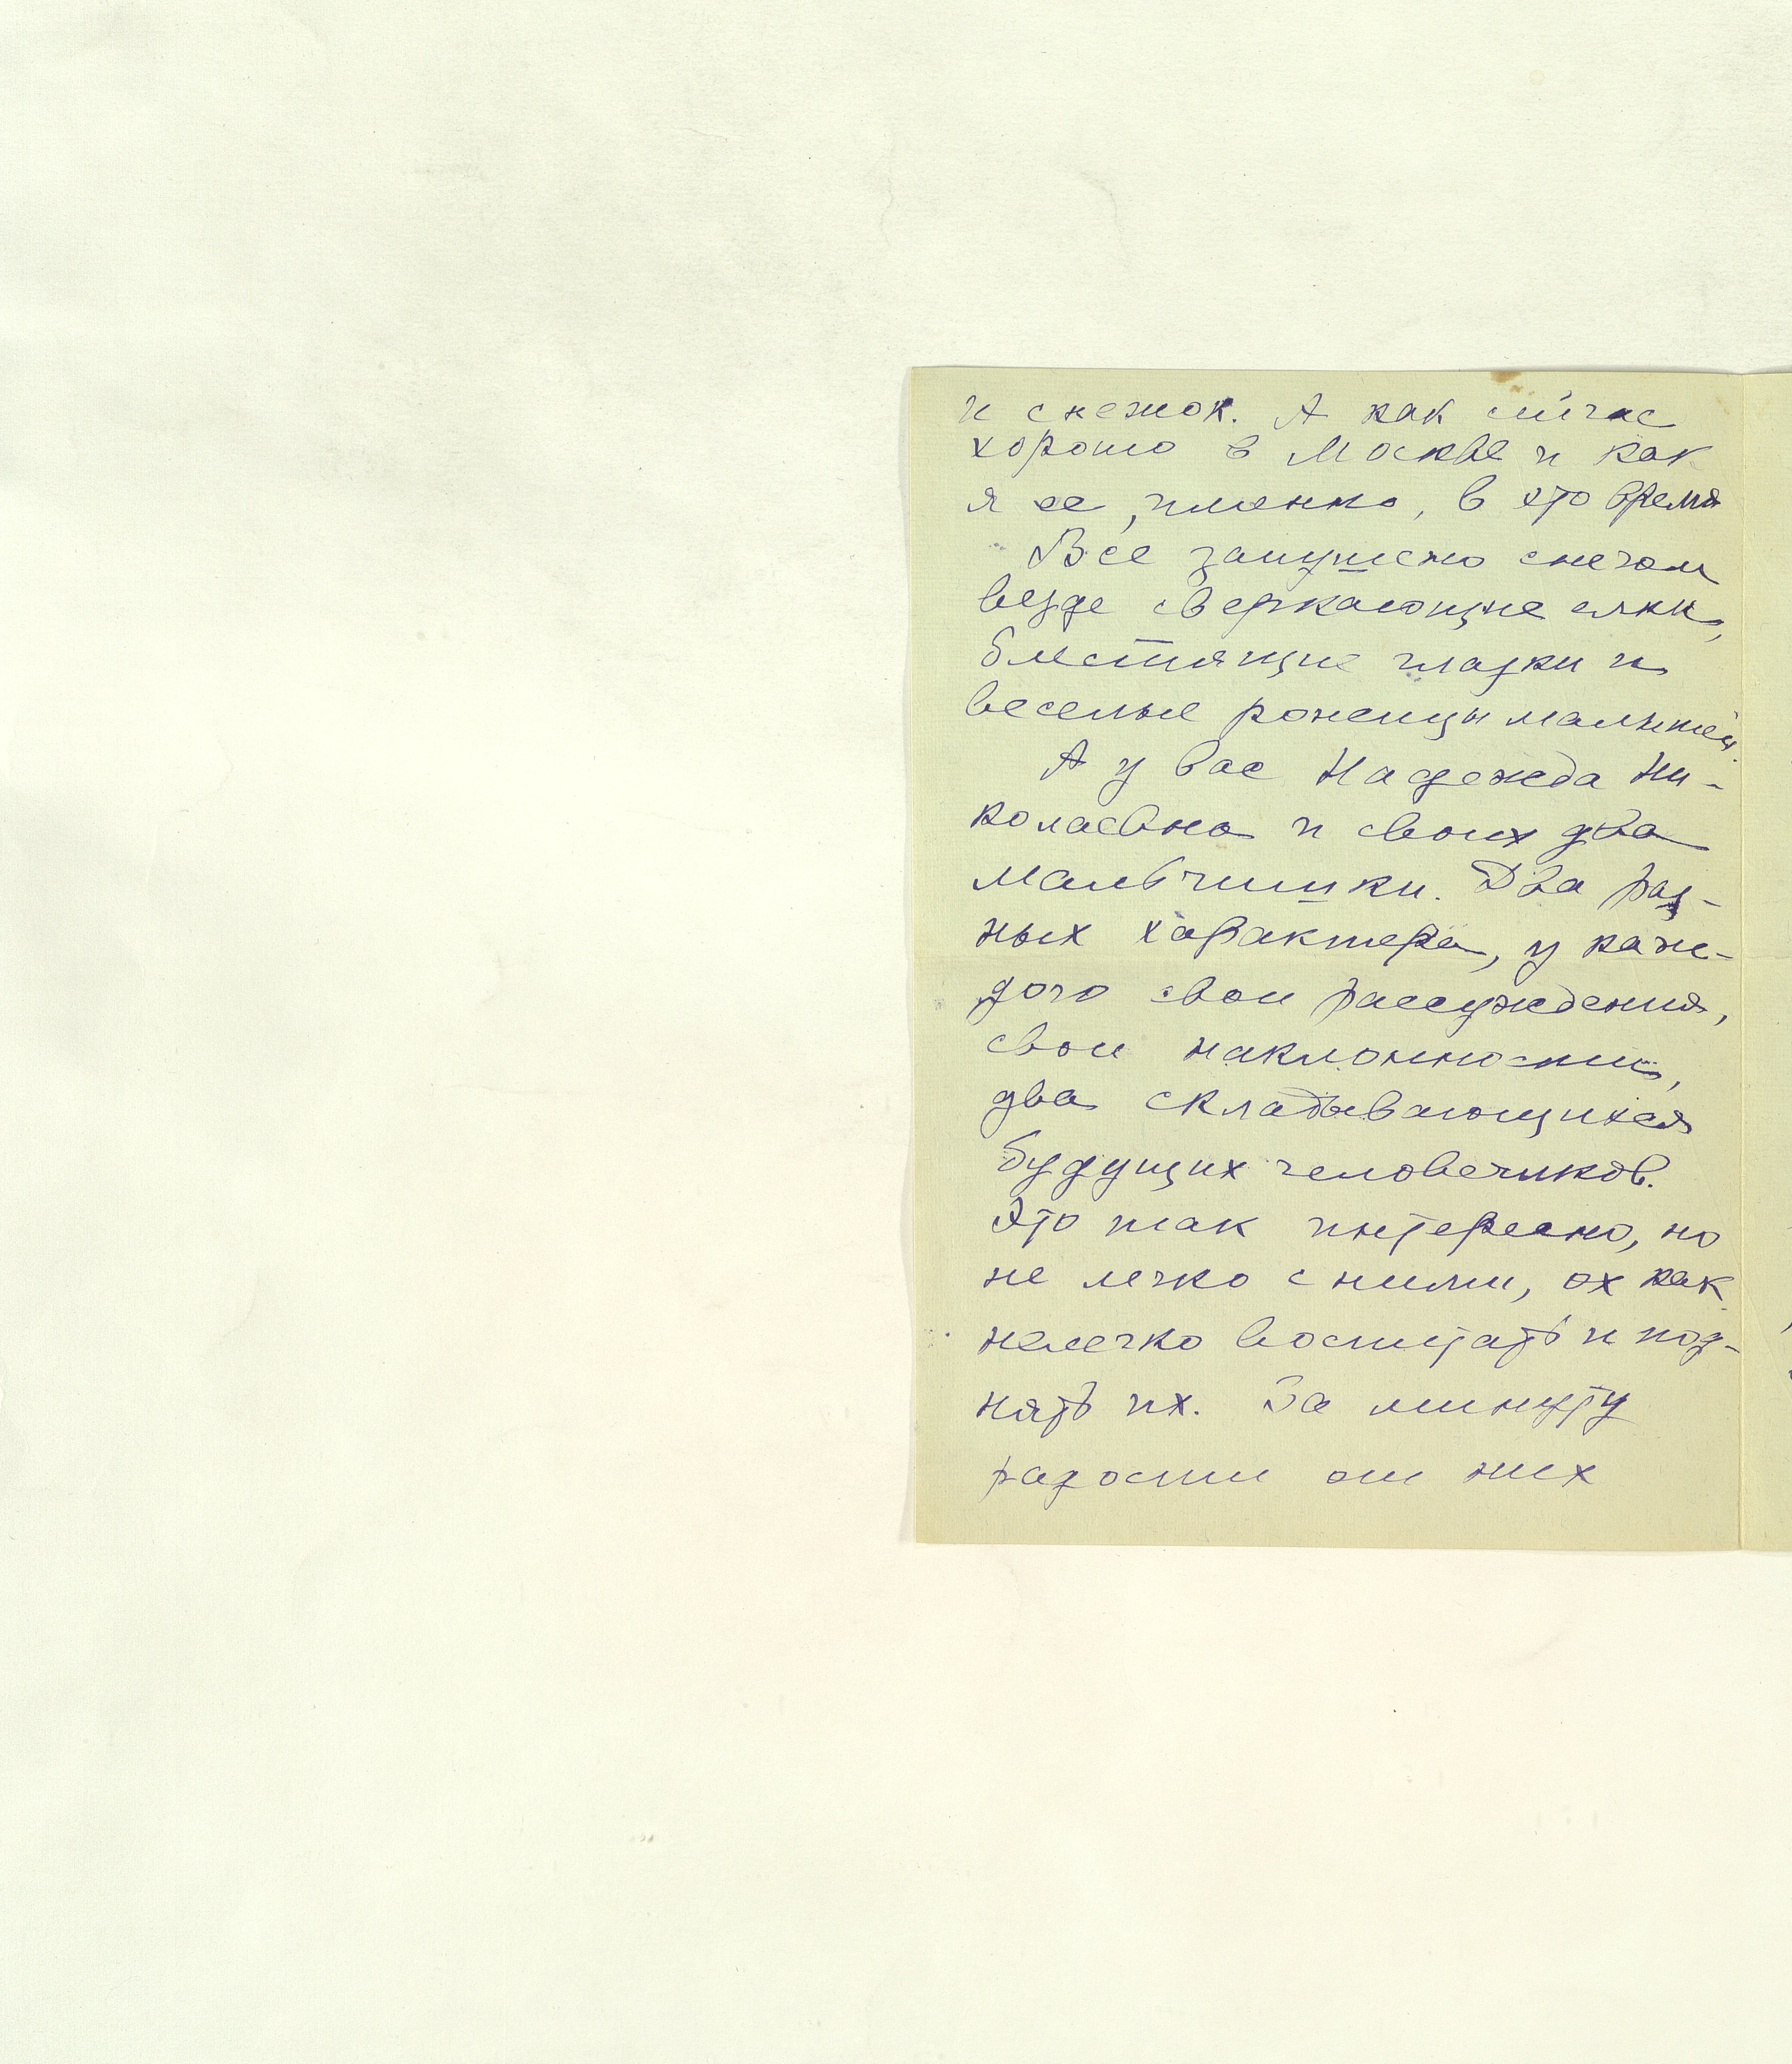 и снежок. А как сейчас
хорошо в Москве и как
я ее, именно, в это время
Все запушено снегом
везде сверкающие елки,
блестящие глазки и
веселые рожицы малышей.
А у вас Надежда Ни-
колаевна и своих два
мальчишки. Два раз-
ных характера, у каж-
дого свои рассуждения,
свои наклонности,
два складывающихся
будущих человечиков.
Это так интересно, но
не легко с ними, ох как
нелегко воспитать и под-
нять их. За минуту
радости от них